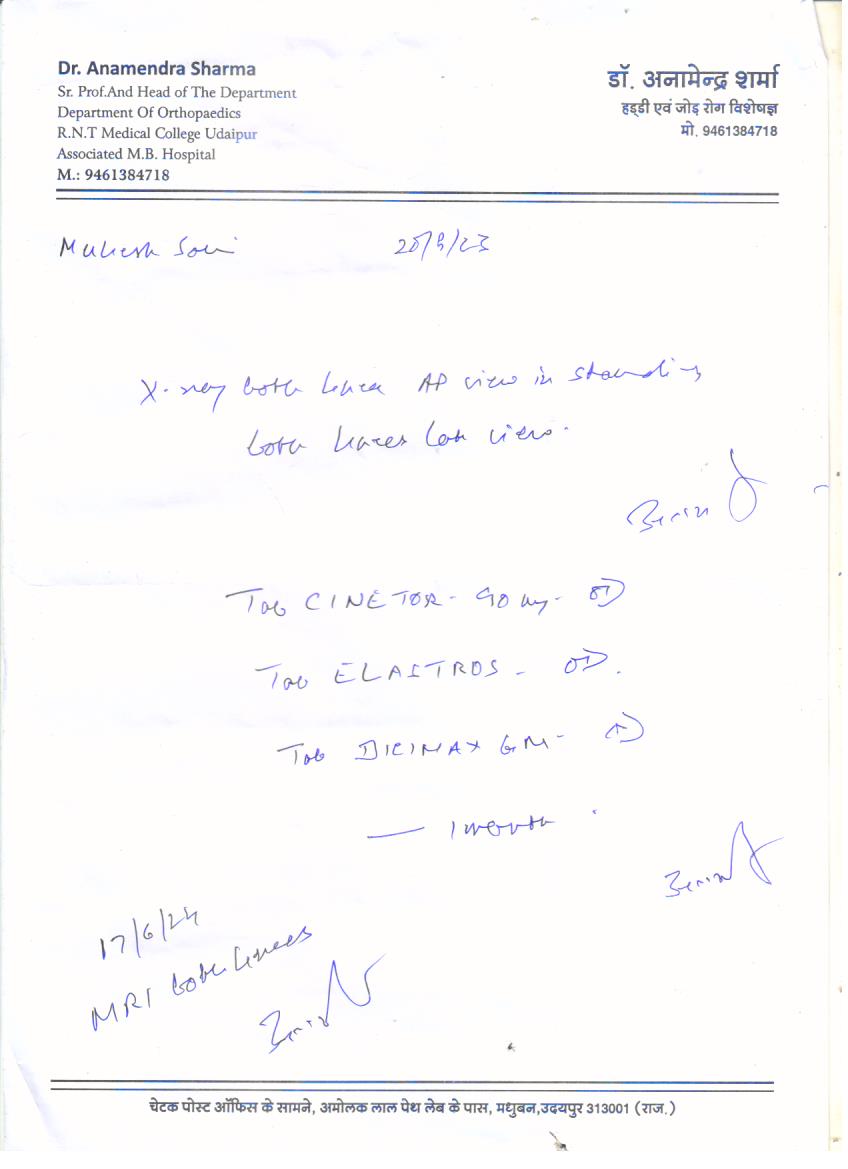 Dr. Anamendra Sharma
Sr. Prof.And Head of The Department
Department Of Orthopaedics
R.N.T Medical College Udaipur
Associated M.B. Hospital
M.: 9461384718
डॉ. अनामेन्द्र शर्मा
हड्डी एवं जोड़ रोग विशेषज्ञ
मो. 9461384718
Mukesh Soni
X-ray both knee AP view in standing
both knees Lat view.
Tab CINETOR - 90 mg - OD
Tab ELASTROS - OD.
Tab DICIMAX GM -
— 1 month
17/6/24
MRI both knees
चेटक पोस्ट ऑफिस के सामने, अमोलक लाल पेथ लेब के पास, मधुबन,उदयपुर 313001 (राज.)